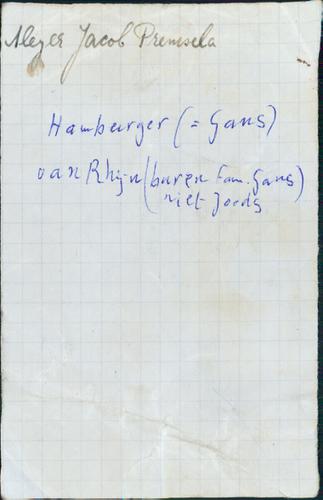 Meyer Jacob Premsela
Hamburger (= Gans)
van Rhijn (buren fam. Gans)
niet Joods